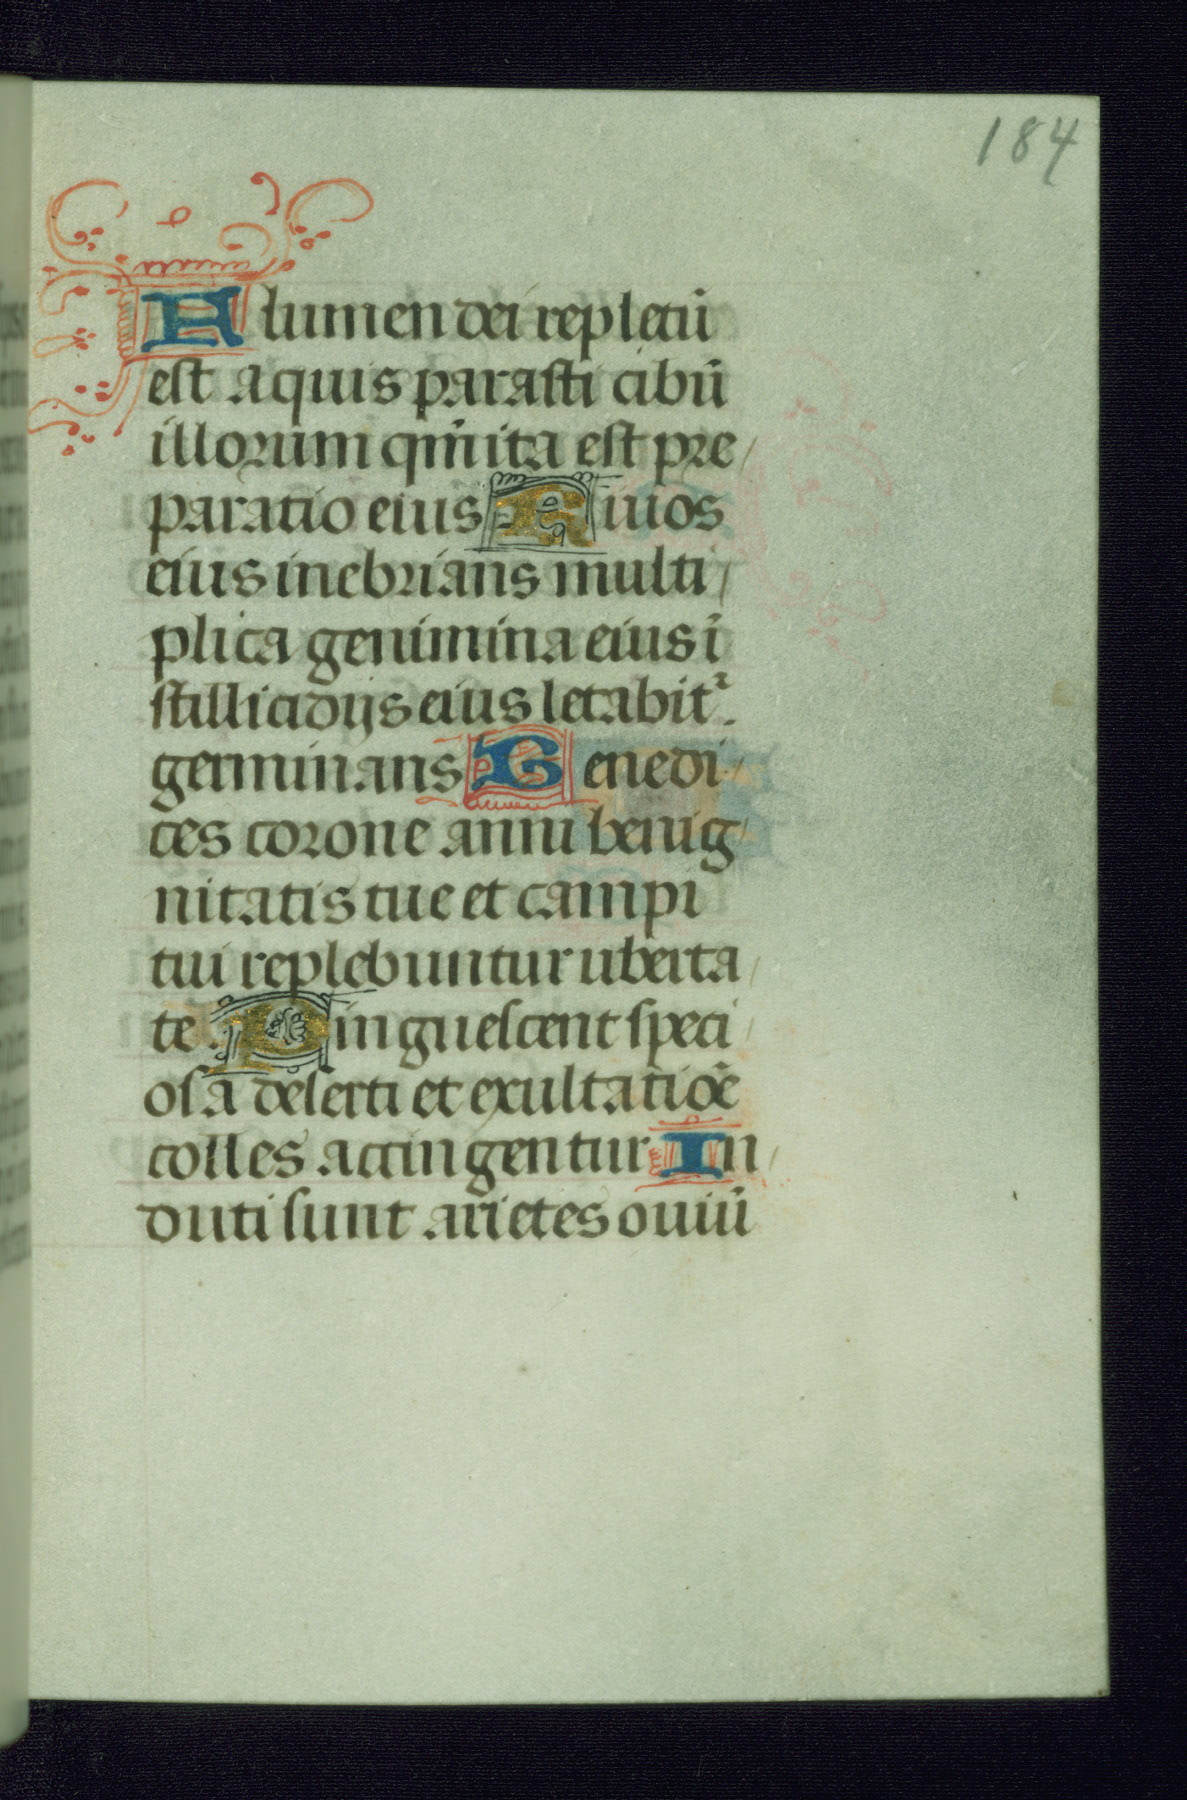 184
Flumen dei repletū
est aquis parasti cibū
illorum qm̄ ita est pre/
paratio eius Riuos
eius inebrians multi/
plica genimina eius ī
stillicidijs eius letabit᷑.
germinans Benedi/
ces corone anni benig/
nitatis tue et campi
tui replebuntur uberta/
te. Pinguescent speci/
osa deserti et exultatiōe
colles accingentur In/
duti sunt arietes ouiū